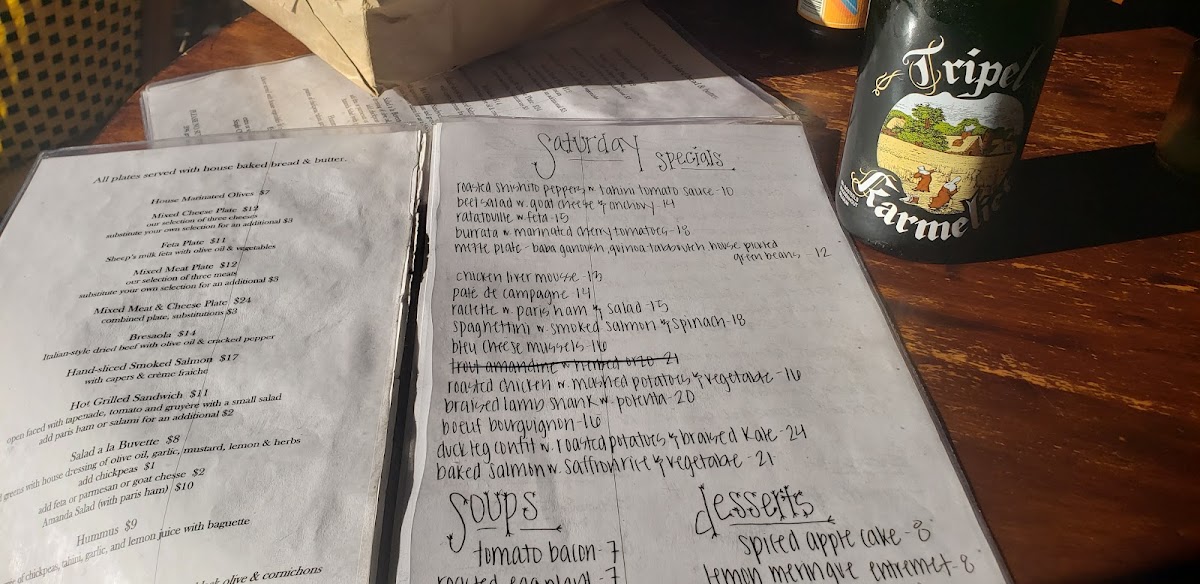 All plates served with house baked bread & butter.
House Marinated Olives $7
Mixed Cheese Plate $12
our selection of three cheeses
substitute your own selection for an additional $3
Feta Plate $11
Sheep's milk feta with olive oil & vegetables
Mixed Meat Plate $12
our selection of three meats
substitute your own selection for an additional $3
Mixed Meat & Cheese Plate $24
combined plate, substitutions $3
Bresaola $14
Italian-style dried beef with olive oil & cracked pepper
Hand-sliced Smoked Salmon $17
with capers & crème fraiche
Hot Grilled Sandwich $11
open faced with tapenade, tomato and gruyère with a small salad
add paris ham or salami for an additional $2
Salad a la Buvette $8
greens with house dressing of olive oil, garlic, mustard, lemon & herbs
add chickpeas $1
add feta or parmesan or goat chesse $2
Amanda Salad (with paris ham) $10
Hummus $9
of chickpeas, tahini, garlic, and lemon juice with baguette
olive & cornichons
Saturday specials
roasted shishito peppers w tahini tomato sauce - 10
beet salad w. goat cheese & anchovy - 14
ratatouille w. feta - 15
burrata w. marinated cherry tomatoes - 18
mette plate - baba ganoush, quinoa tabbouleh, house pickled
green beans 12
chicken liver mousse - 13
pate de campagne - 14
raclette w. paris ham & salad - 15
spaghettini w. smoked salmon & spinach - 18
bleu cheese mussels - 16
trout amandine w herbed orzo 21
roasted chicken w. mashed potatoes & vegetable - 16
braised lamb shank w. polenta - 20
boeuf bourguignon - 16
duck leg confit w. roasted potatoes & braised kale - 24
baked salmon w. saffron rice & vegetable - 21
soups
tomato bacon - 7
roasted eggplant - 7
desserts
spiced apple cake - 8
lemon meringue entremet - 8
Tripel
Karmeliet